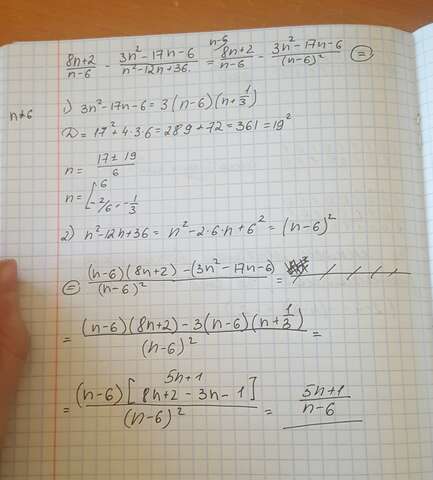 n-6
(8n+2)/(n-6) - (3n²-17n-6)/(n²-12n+36) = (8n+2)/(n-6) - (3n²-17n-6)/(n-6)² =
n≠6
1) 3n²-17n-6 = 3(n-6)(n+1/3)
D = 17²+4·3·6 = 289+72 = 361 = 19²
n = (17±19)/6
n = [6
-2/6 = -1/3
2) n²-12n+36 = n²-2·6·n+6² = (n-6)²
= ((n-6)(8n+2)-(3n²-17n-6))/(n-6)² =
= ((n-6)(8n+2)-3(n-6)(n+1/3))/(n-6)² =
5n+1
= ((n-6)[8n+2-3n-1])/(n-6)² = (5n+1)/(n-6)